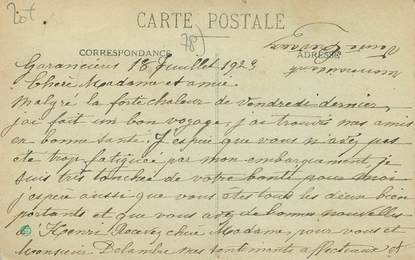 20f
CARTE POSTALE
785
CORRESPONDANCE
ADRESSE
Garancières 18 Juillet 1923
Chère Madame et amie
Malgré la forte chaleur de vendredi dernier,
j'ai fait un bon voyage, j'ai trouvé mes amis
en bonne santé. J'espère que vous n'avez pas
été trop fatiguée par mon embarquement, je
suis très touchée de votre bonté pour moi
j'espère aussi que vous êtes tous les deux bien
portants et que vous avez de bonnes nouvelles
d'Henri. Recevez chère Madame, pour vous et
Monsieur Delambre mes sentiments affectueux et